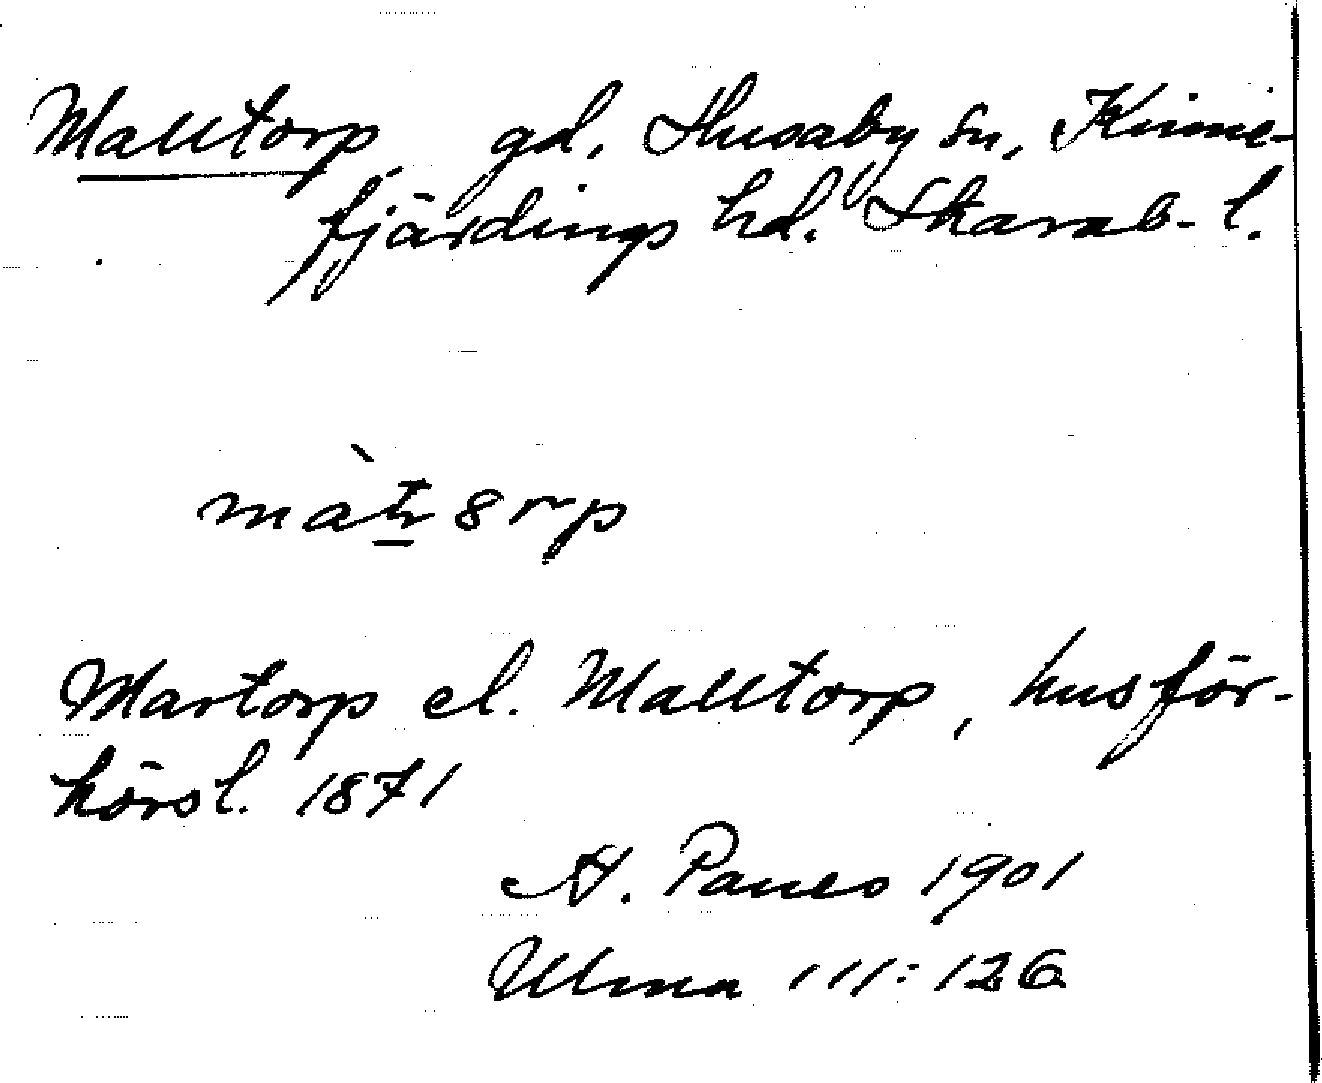 Malltorp gd, Husaby sn, Kinne-
fjärdings hd. Skarab. l.
Martorp el. Malltorp, husför-
hörsl. 1871
1901
Ulma 111:126